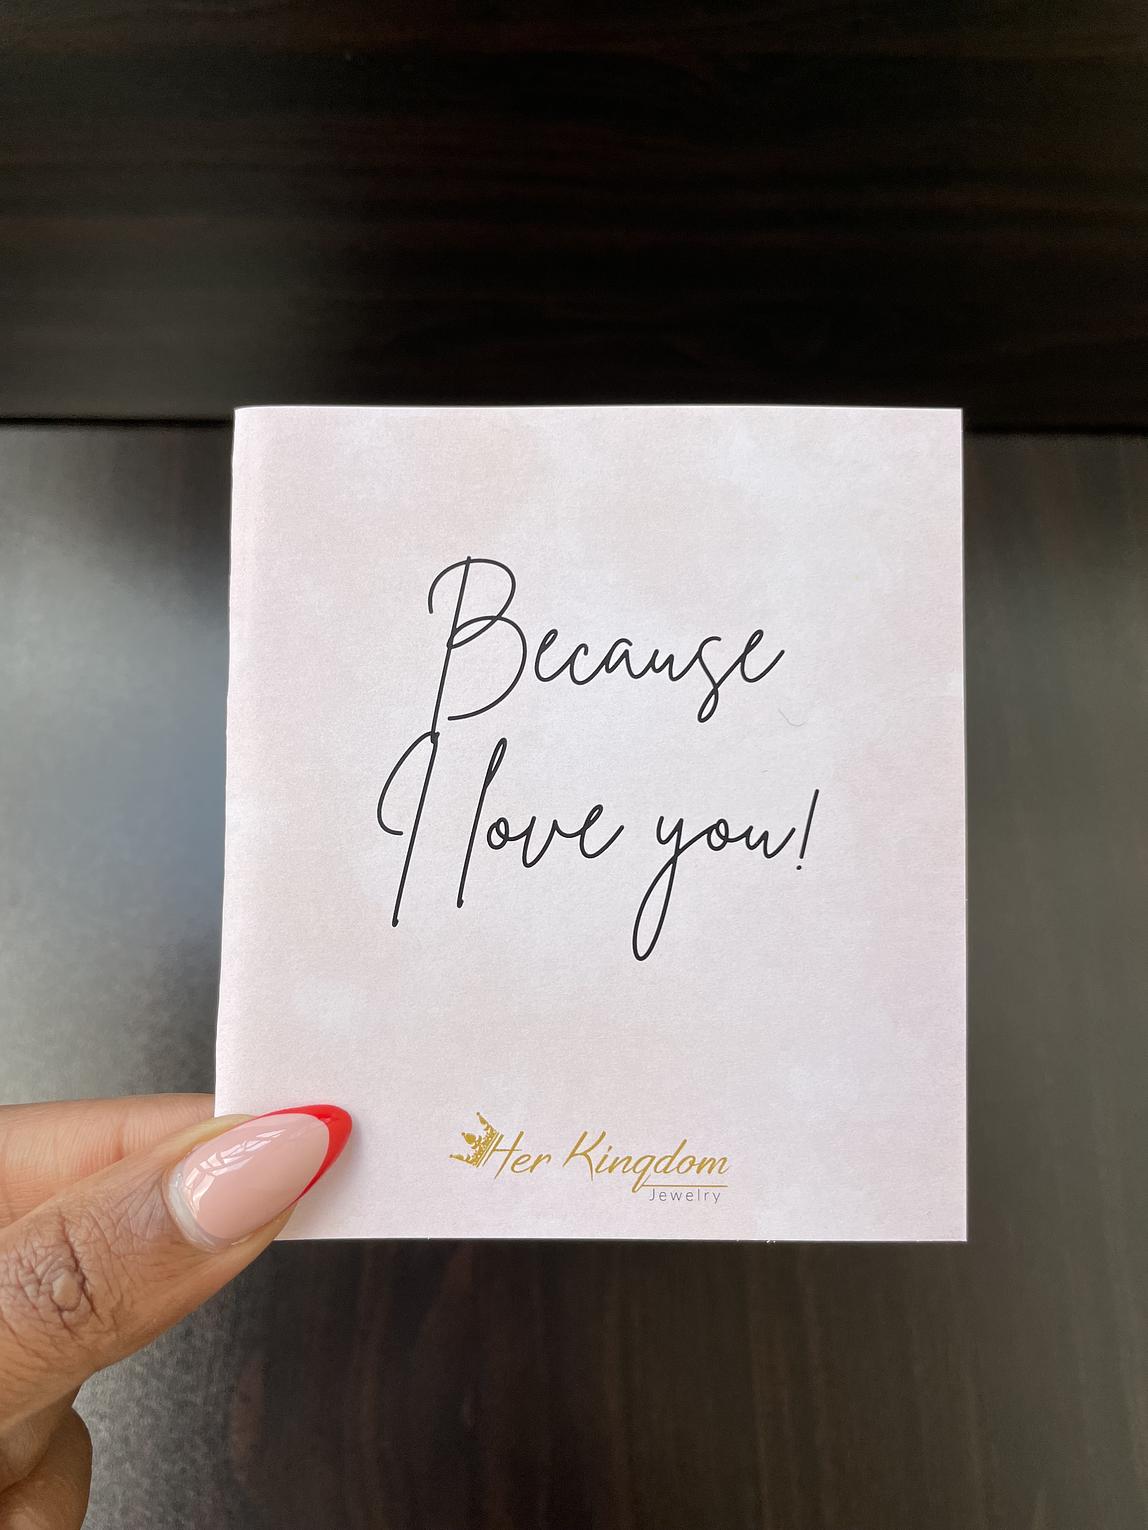 Because
I love you!
Her Kingdom
Jewelry